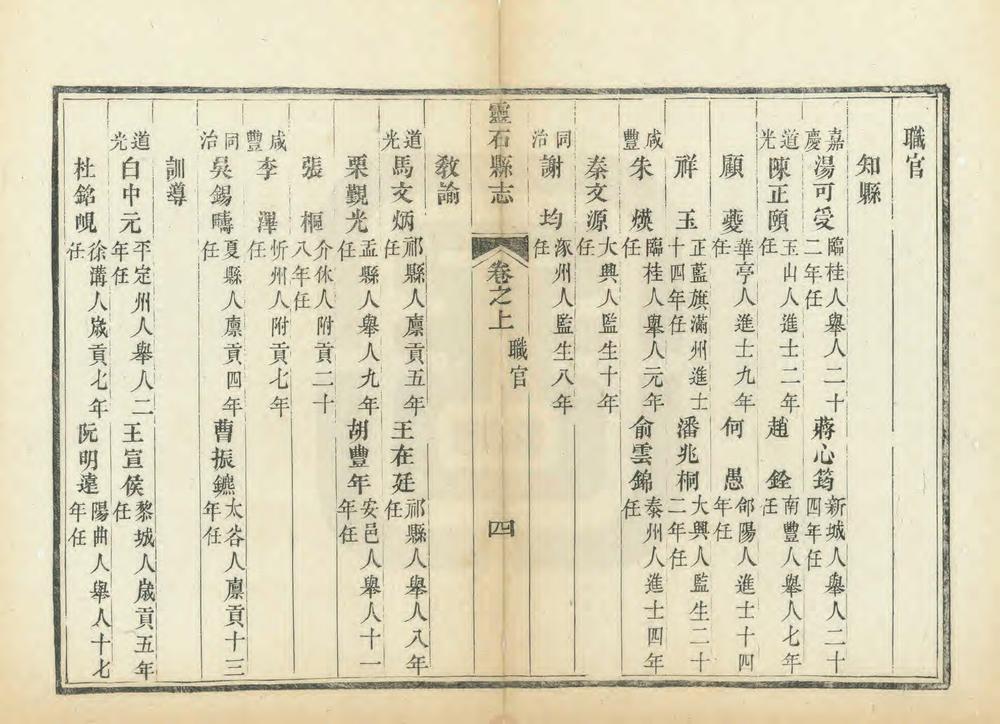 職官
知縣
嘉慶 湯可受 臨桂人舉人二十二年任 蔣心筠 新城人舉人二十四年任
道光 陳正頤 玉山人進士二年任 趙銓 南豐人舉人七年任
顧夔 華亭人進士九年任 何愚 郃陽人進士十四年任
祥玉 正藍旗滿州進士十四年任 潘兆桐 大興人監生二十二年任
咸豐 朱煐 臨桂人舉人元年任 俞雲錦 泰州人進士四年任
秦文源 大興人監生十年任
同治 謝均 涿州人監生八年任
靈石縣志 卷之上 職官 四
教諭
道光 馬文炳 祁縣人廩貢五年任 王在廷 祁縣人舉人八年任
栗覲光 孟縣人舉人九年任 胡豐年 安邑人舉人十一年任
張樞 介休人附貢二十八年任
咸豐 李澤 忻州人附貢七年任
同治 吳錫疇 夏縣人廩貢四年任 曹振鑣 太谷人廩貢十三年任
訓導
道光 白中元 平定州人舉人二年任 王宣侯 黎城人歲貢五年任
杜銘峴 徐溝人歲貢七年任 阮明遠 陽曲人舉人十七年任